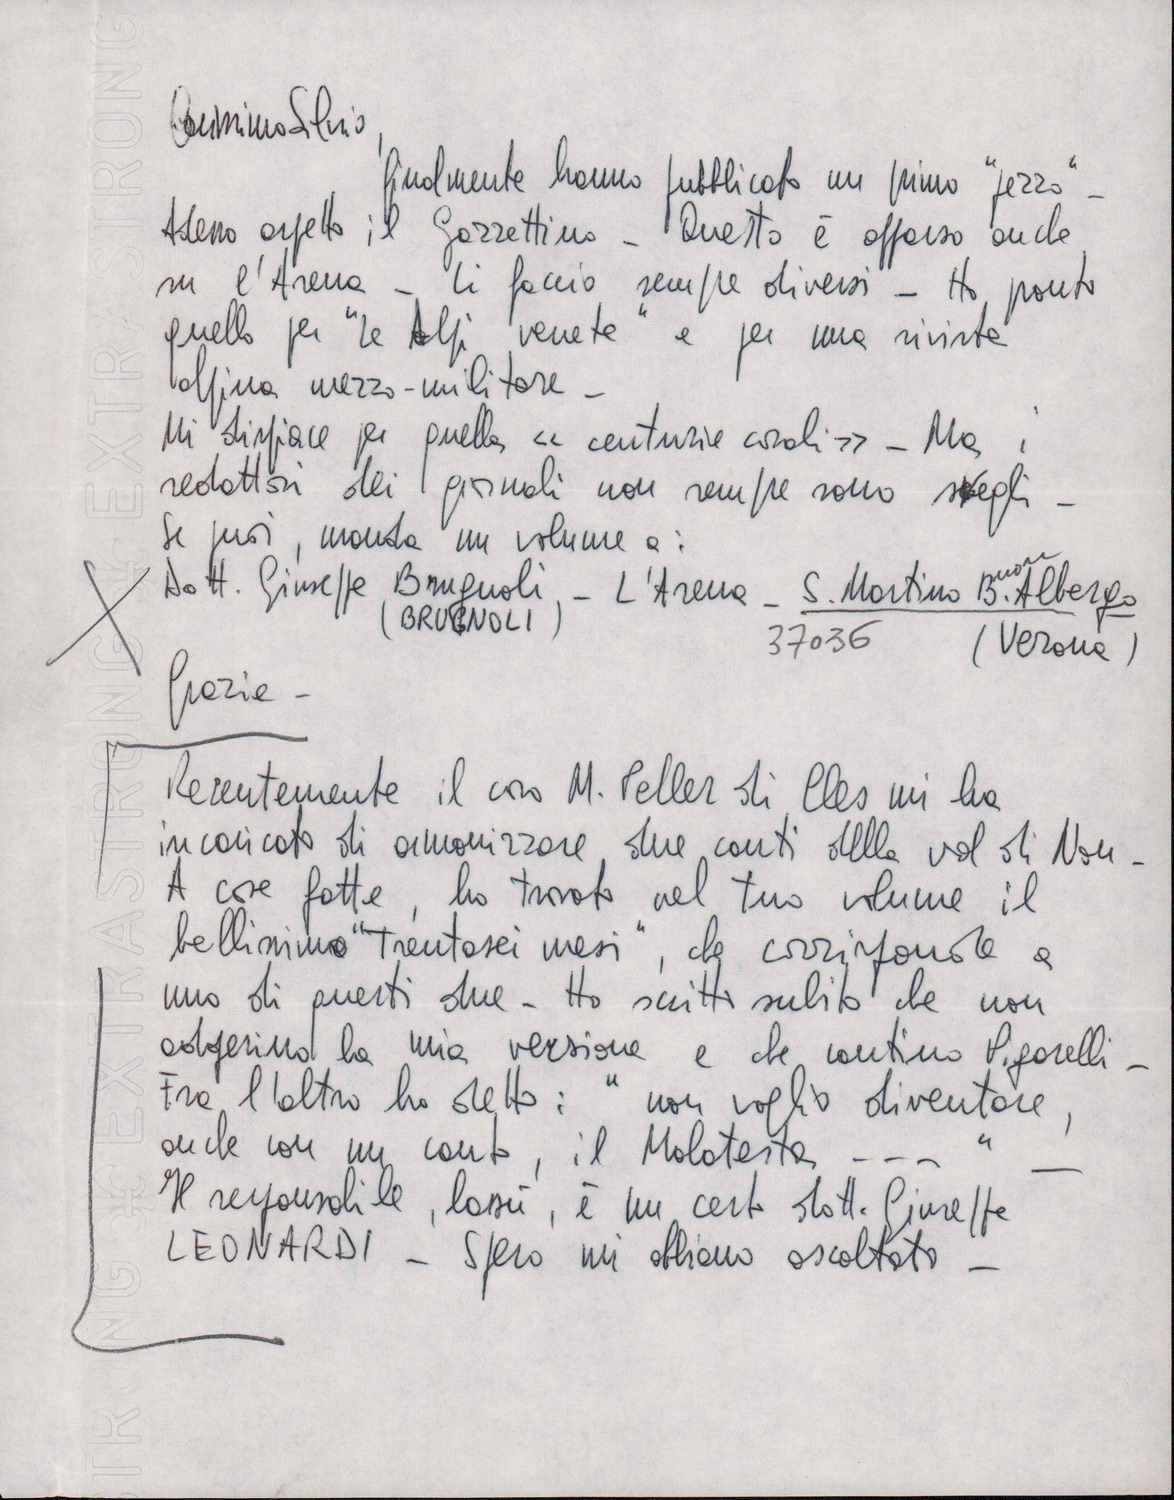 Carissimo Silvio,
finalmente hanno pubblicato un primo "pezzo" -
Adesso aspetto il Gazzettino - Questo è apparso anche
su l'Arena - Li faccio sempre diversi - Ho pronto
quello per "Le Alpi venete" e per una rivista
alpina mezzo-militare -
Mi dispiace per quella << centurie corali >> - Ma i
redattori dei giornali non sempre sono svegli -
Se puoi, manda un volume a:
Dott. Giuseppe Brugnoli - L'Arena - S. Martino B.uon Albergo
(BRUGNOLI)
37036 (Verona)
Grazie -
Recentemente il coro M. Peller di Cles mi ha
incaricato di armonizzare due canti della val di Non -
A cose fatte, ho trovato nel tuo volume il
bellissimo "Trentasei mesi", che corrisponde a
uno di questi due - Ho scritto subito che non
adoperino la mia versione e che cantino Pigarelli -
Fra l'altro ho detto: " non voglio diventare,
anche con un canto, il Malatesta --- " -
Il responsabile, lassù, è un certo dott. Giuseppe
LEONARDI - Spero mi abbiano ascoltato -
EXTRA STRONG
EXTRA STRONG
EXTRA STRONG